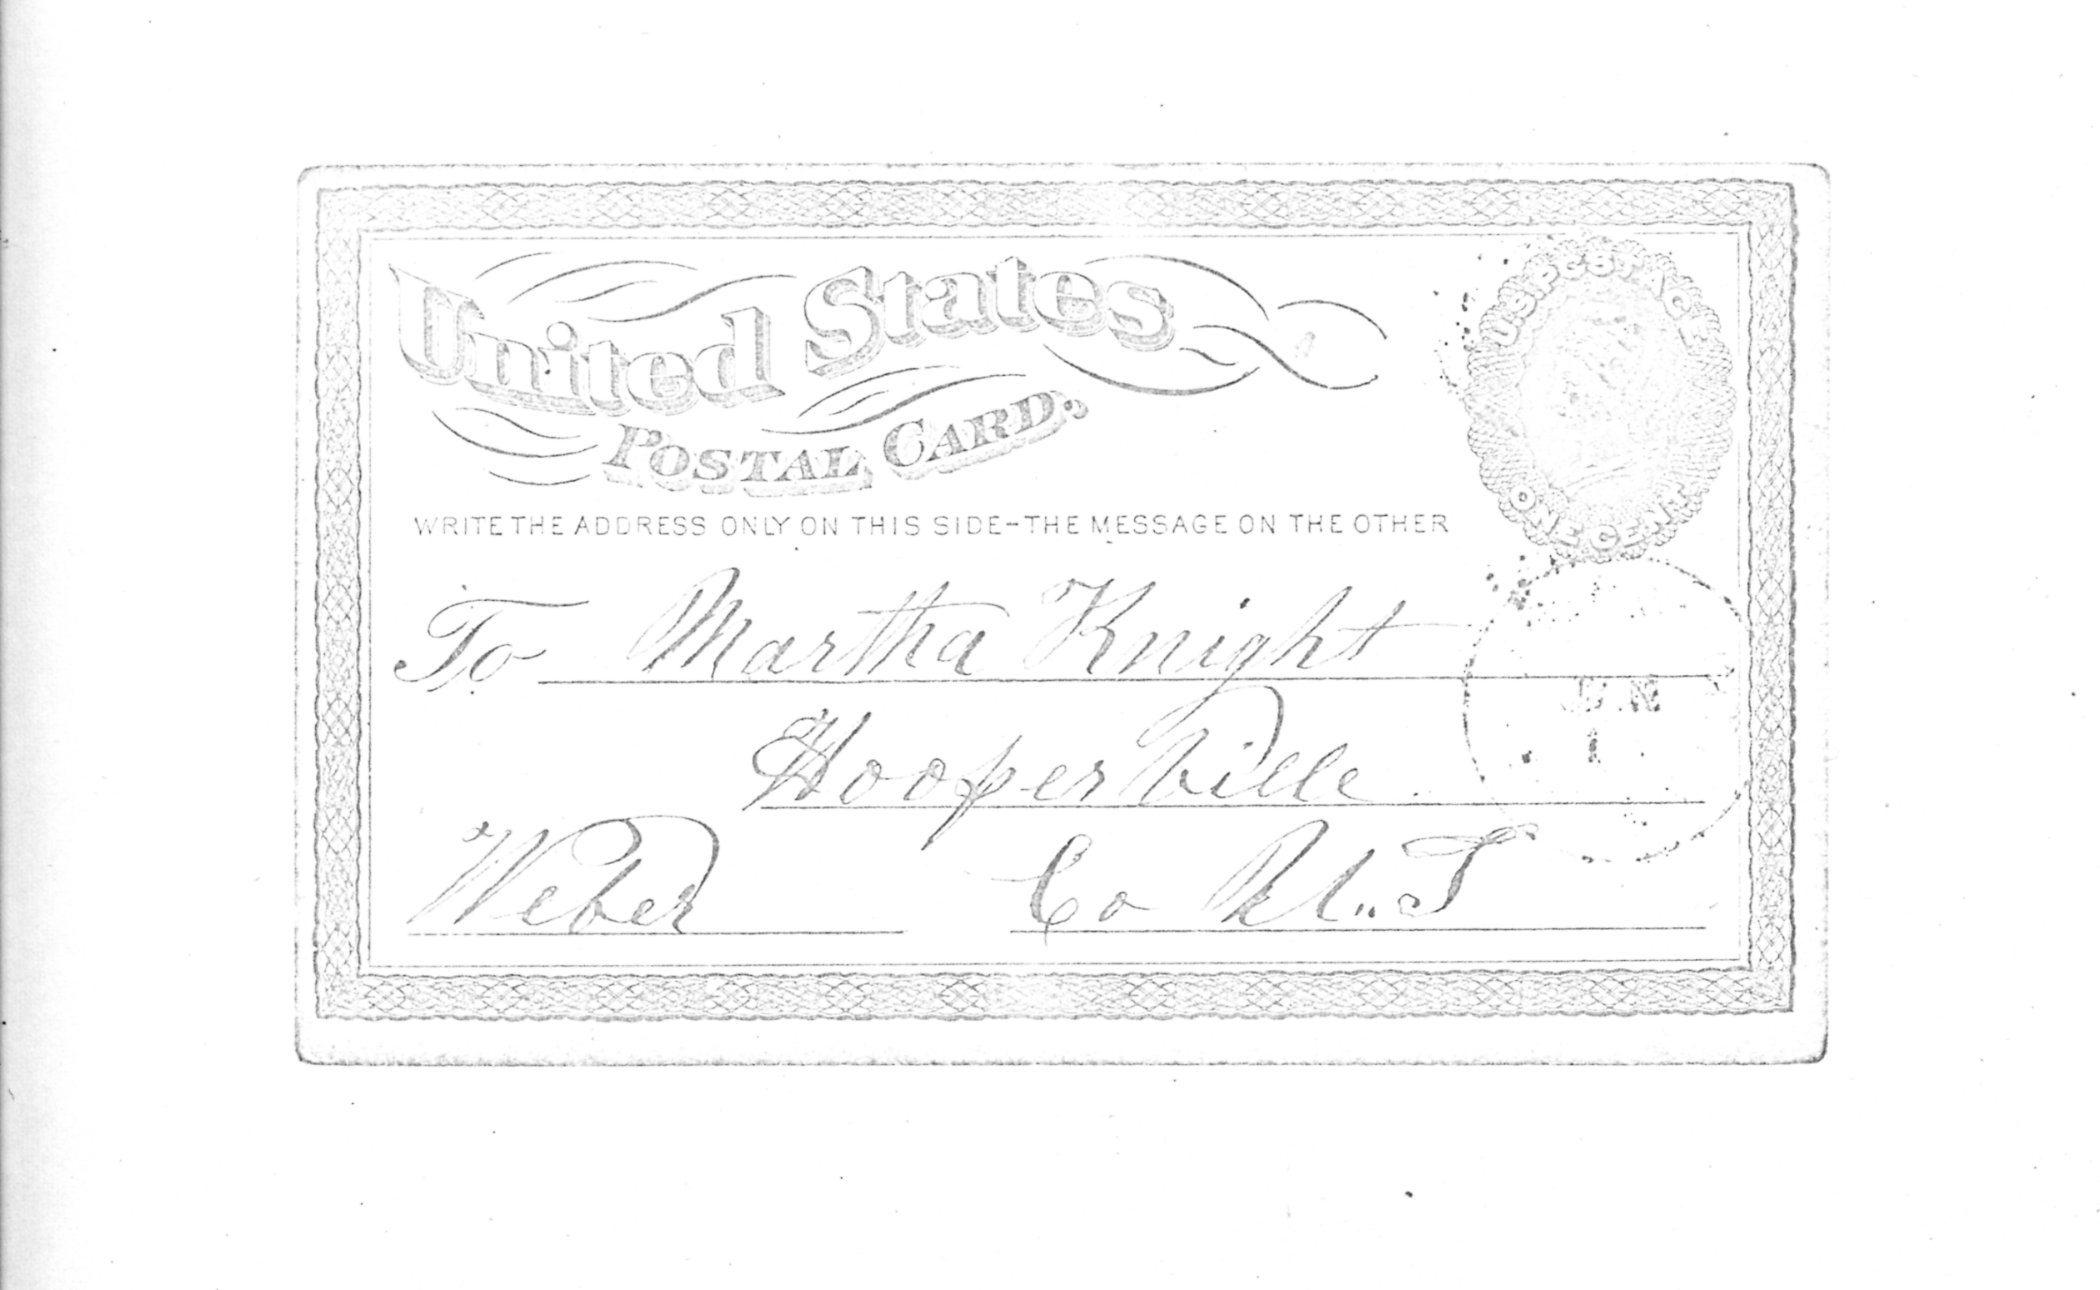 United States
POSTAL CARD.
U.S. POSTAGE
ONE CENT
WRITE THE ADDRESS ONLY ON THIS SIDE-THE MESSAGE ON THE OTHER
To Martha Knight
Hooperville.
Weber Co U.T